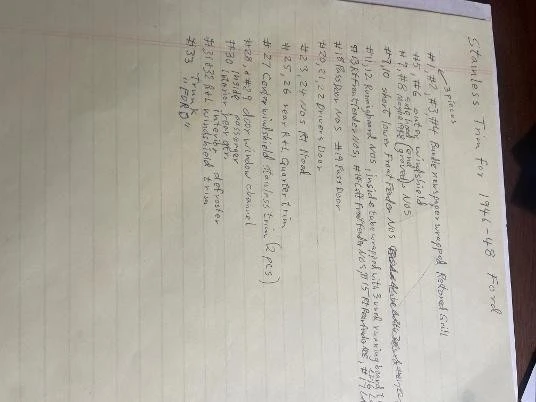 Stainless Trim for 1946-48 Ford
3 pieces
#1, #2, #3, #4 Bundle newspaper wrapped Restored Grill
#5, #6 outer windshield
#7, #8 (gravel), NOS
#9, 10 short lower Front Fender NOS
#11, 12 Runningboard NOS, inside tube wrapped with 3 used running board
#13 Rt Front fender NOS, #14 Left Front Fender NOS, #15 Rt Rear
#18 Pass Door NOS #19 Pass Door
#20, 21, 22 Drivers Door
#23, 24 NOS Rt Hood
#25, 26 rear R+L Quarter trim
#27 Center windshield stainless trim (2 pcs)
#28, #29 door window channel
#30 inside passenger
interior defroster
#31 #32 R+L windshield trim
#33 Trunk
"FORD"